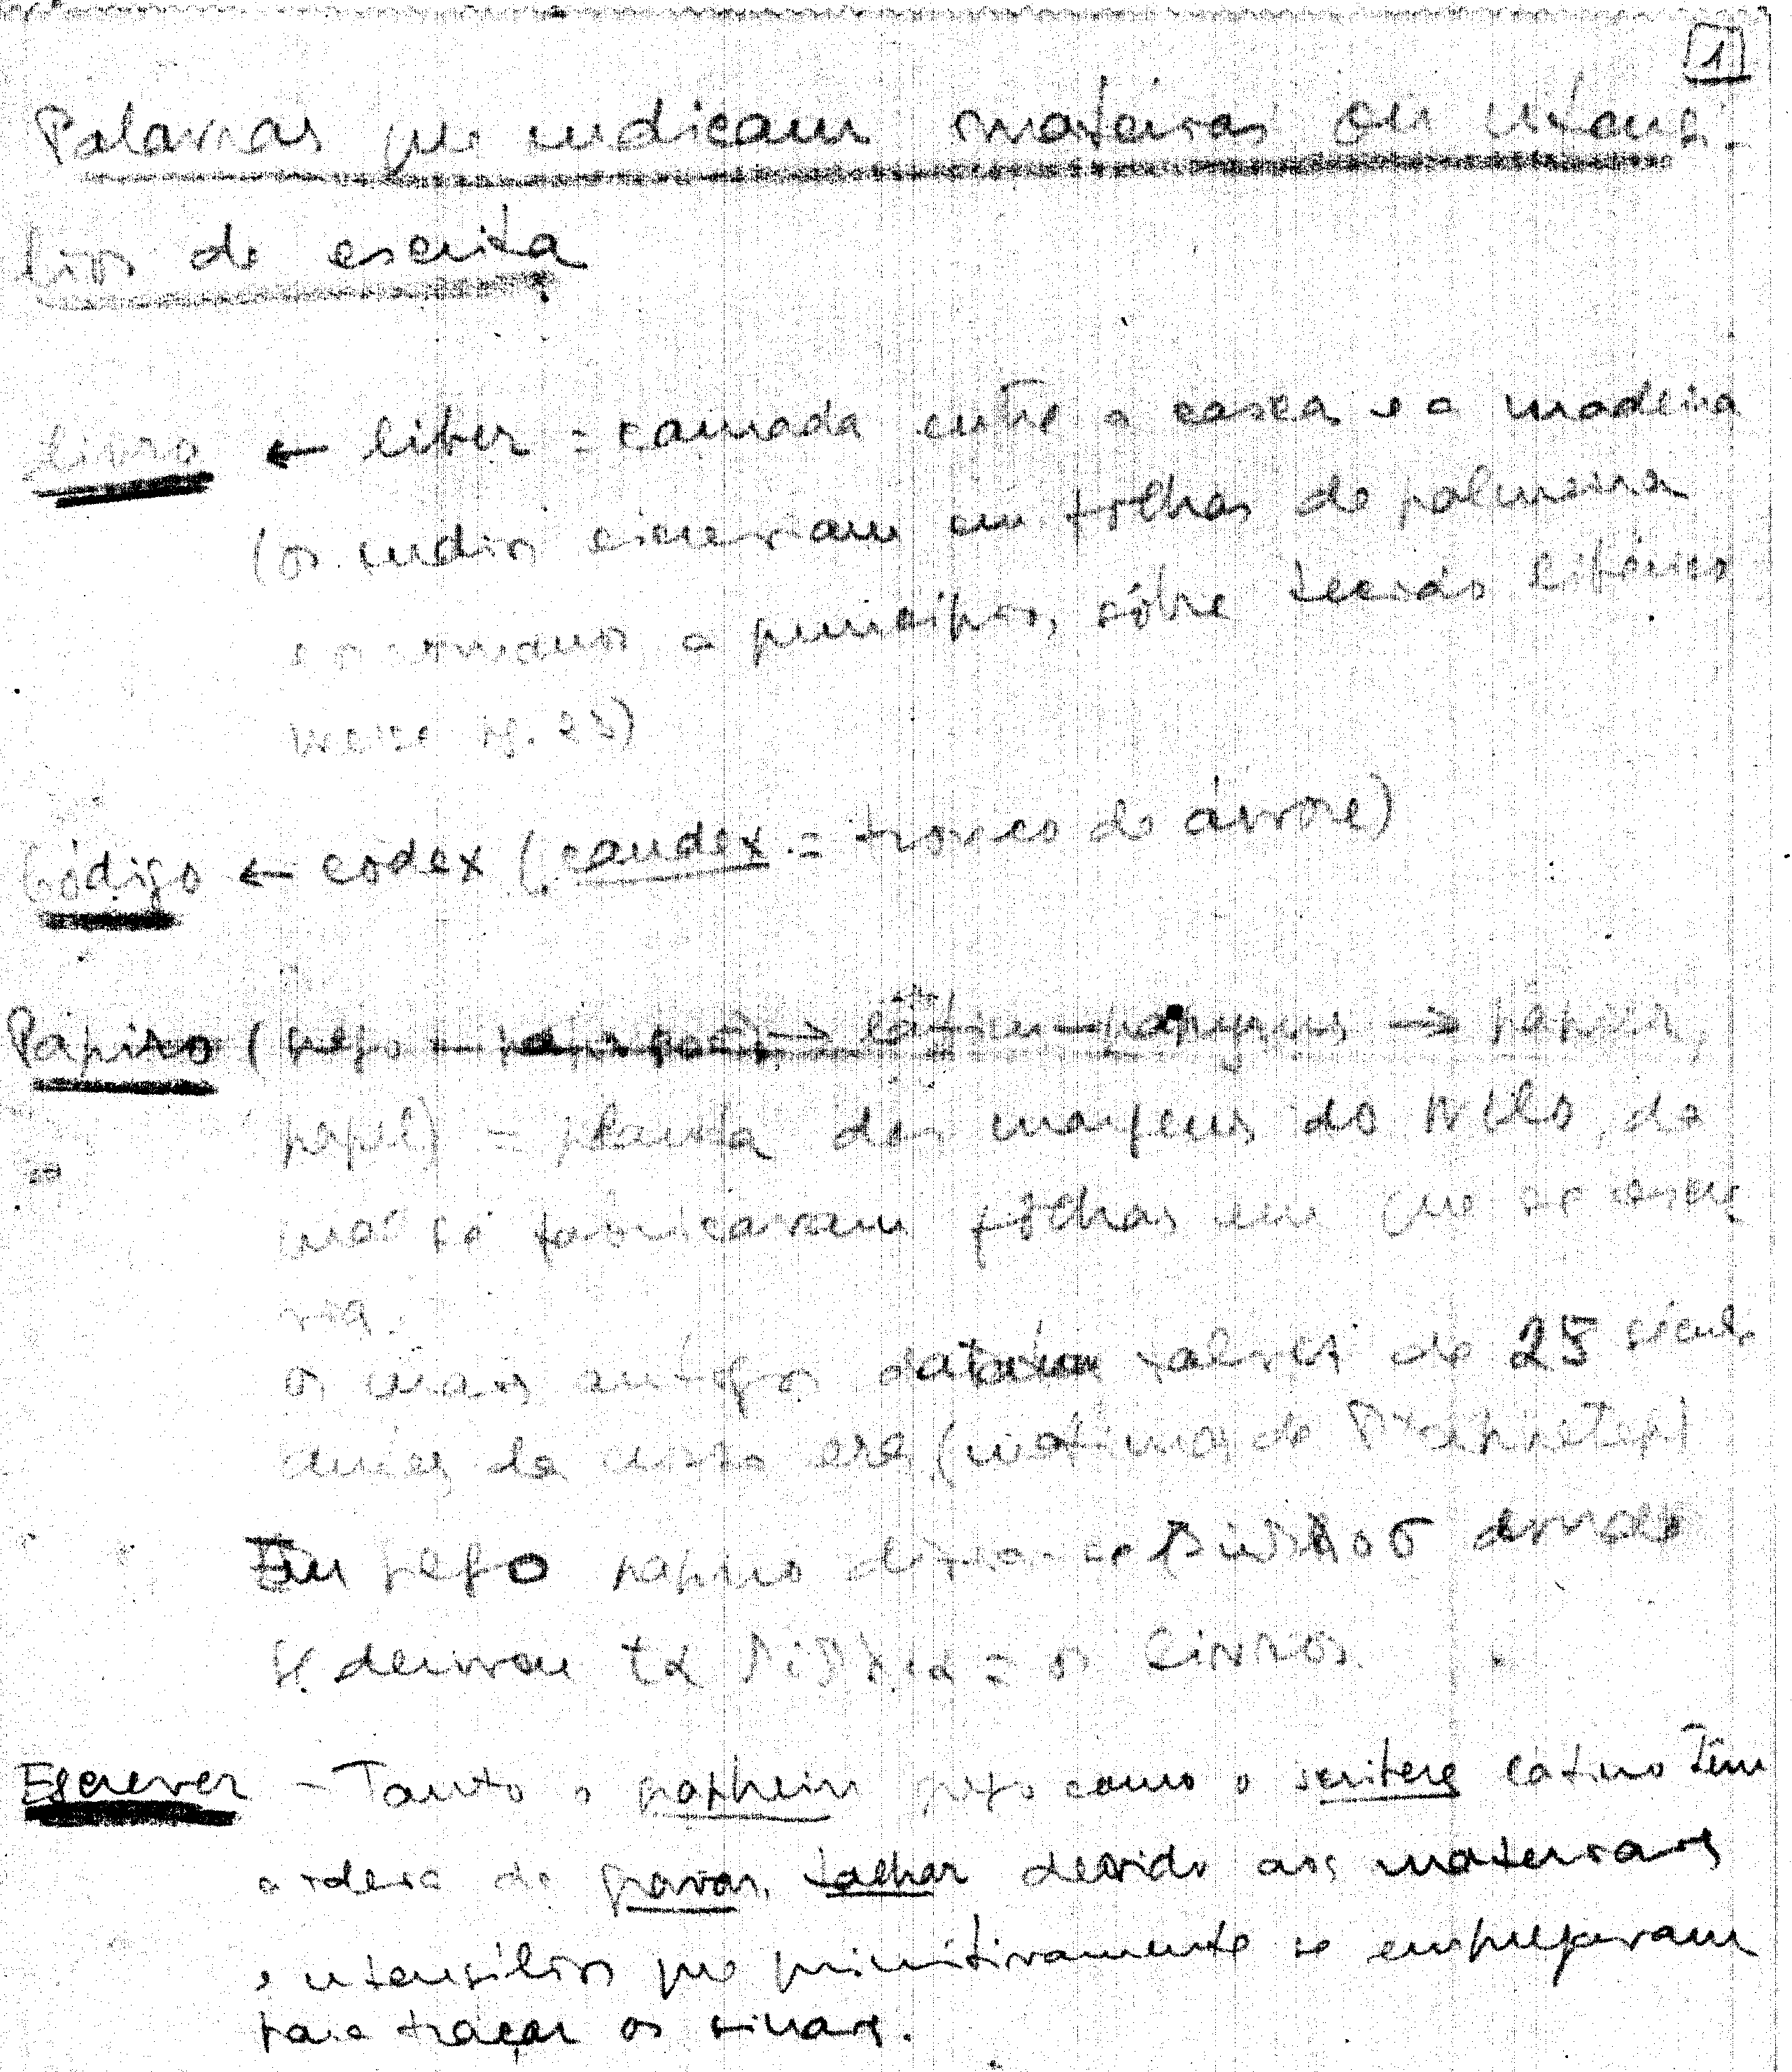 1
Palavras que indicam materias ou utensí-
lios de escrita
livro ← liber = camada entre a casca e a madeira
(os indios escreviam em folhas de palmeira
e os romanos a principio, sôbre tecido
pg. 23)
Código ← codex (caudex = tronco de árvore)
Papiro (grego → latim papyrus → papier,
papel) = planta das margens do Nilo, da
qual se fabricavam fôlhas em que se escre
via.
os mais antigos datam talvez do 25 século
antes da nossa era (máximas de Ptahhetep)
Em grego papiro dizia-se βιβλοσ donde
se derivou τα βιβλια = os livros.
Escrever - Tanto o graphein grego como o scribere latino têm
a ideia de gravar, talhar devido aos materiais
e utensílios que primitivamente se empregavam
para traçar os sinais.